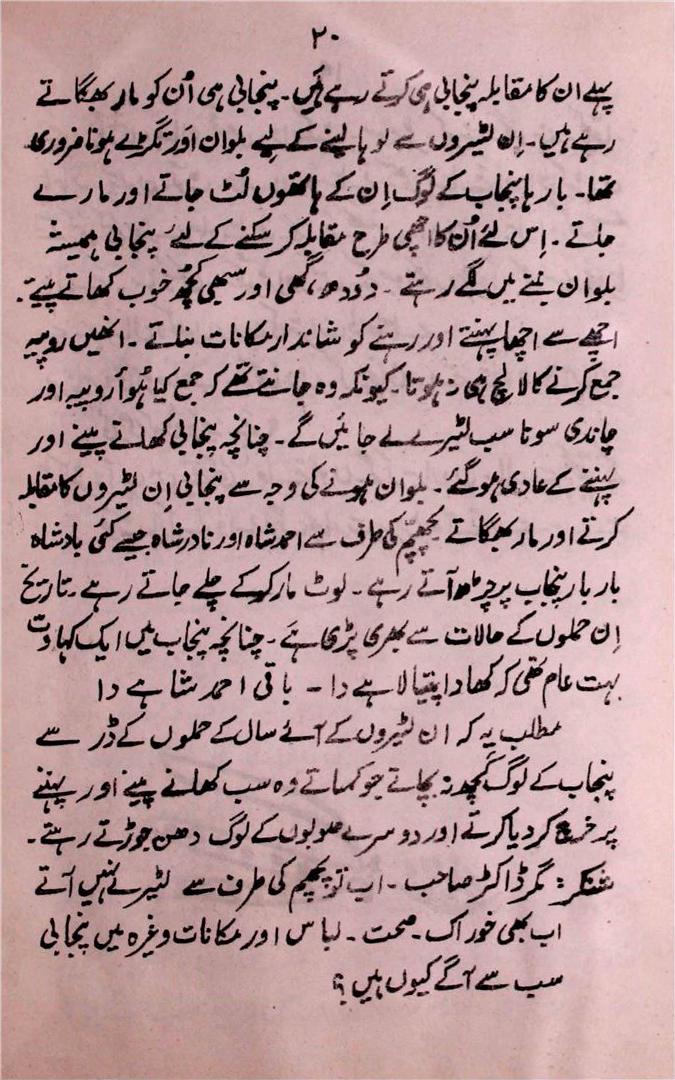 ۲۰
پہلے ان کا مقابلہ پنجابی ہی کرتے رہے ہیں۔ پنجابی ہی اُن کو مار بھگاتے
رہے ہیں۔ اِن لٹیروں سے لوہا لینے کے لیے بلوان اور تگڑے ہونا ضروری
تھا۔ بارہا پنجاب کے لوگ اِن کے ہاتھوں لُٹ جاتے اور مارے
جاتے۔ اِس لئے اُن کا اچھی طرح مقابلہ کر سکنے کے لئے پنجابی ہمیشہ
بلوان بننے میں لگے رہتے ۔ دُودھ، گھی اور سبھی کچھ خوب کھاتے پیتے۔
اچھے سے اچھا پہنتے اور رہنے کو شاندار مکانات بناتے ۔ انھیں روپیہ
جمع کرنے کا لالچ ہی نہ ہوتا۔ کیونکہ وہ جانتے تھے کہ جمع کیا ہُوا روپیہ اور
چاندی سونا سب لٹیرے لے جائیں گے۔ چنانچہ پنجابی کھانے پینے اور
پہننے کے عادی ہو گئے ۔ بلوان ہونے کی وجہ سے پنجابی اِن لٹیروں کا مقابلہ
کرتے اور مار بھگاتے پچھّم کی طرف سے احمد شاہ اور نادر شاہ جیسے کئی بادشاہ
بار بار پنجاب پر چڑھ آتے رہے ۔ لوٹ مار کر کے چلے جاتے رہے ۔ تاریخ
اِن حملوں کے حالات سے بھری پڑی ہے۔ چنانچہ پنجاب میں ایک کہاوت
بہت عام تھی کہ کھادا پیتا لاہے دا - باقی احمد شاہے دا
مطلب یہ کہ ان لٹیروں کے آئے سال کے حملوں کے ڈر سے
پنجاب کے لوگ کچھ نہ بچاتے جو کماتے وہ سب کھانے پینے اور پہننے
پر خرچ کر دیا کرتے اور دوسرے صوبوں کے لوگ دھن جوڑتے رہتے ۔
شنکر: مگر ڈاکٹر صاحب ۔ اب تو پچھم کی طرف سے لٹیرے نہیں آتے
اب بھی خوراک ۔ صحت ۔ لباس اور مکانات وغیرہ میں پنجابی
سب سے آگے کیوں ہیں ؟